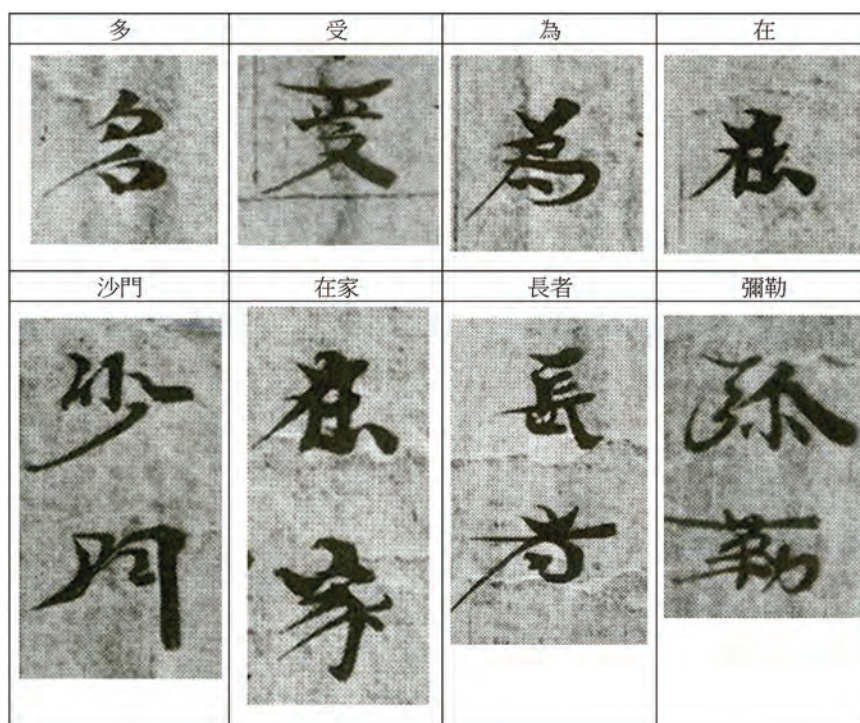 多
受
為
在
名
受
為
在
沙門
在家
長者
彌勒
沙門
在家
長者
弥勒